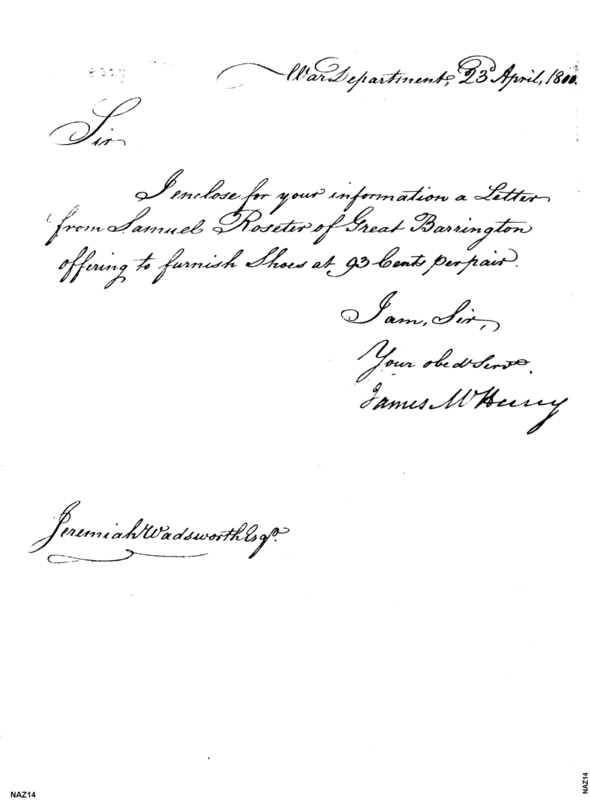 War Department, 23d April, 1800.
Sir
I enclose for your information a Letter
from Samuel Roseter of Great Barrington
offering to furnish Shoes at 93 Cents per pair.
I am, Sir,
Your obed Servt.
James McHenry
Jeremiah Wadsworth Esqr.
NAZ14
NAZ14